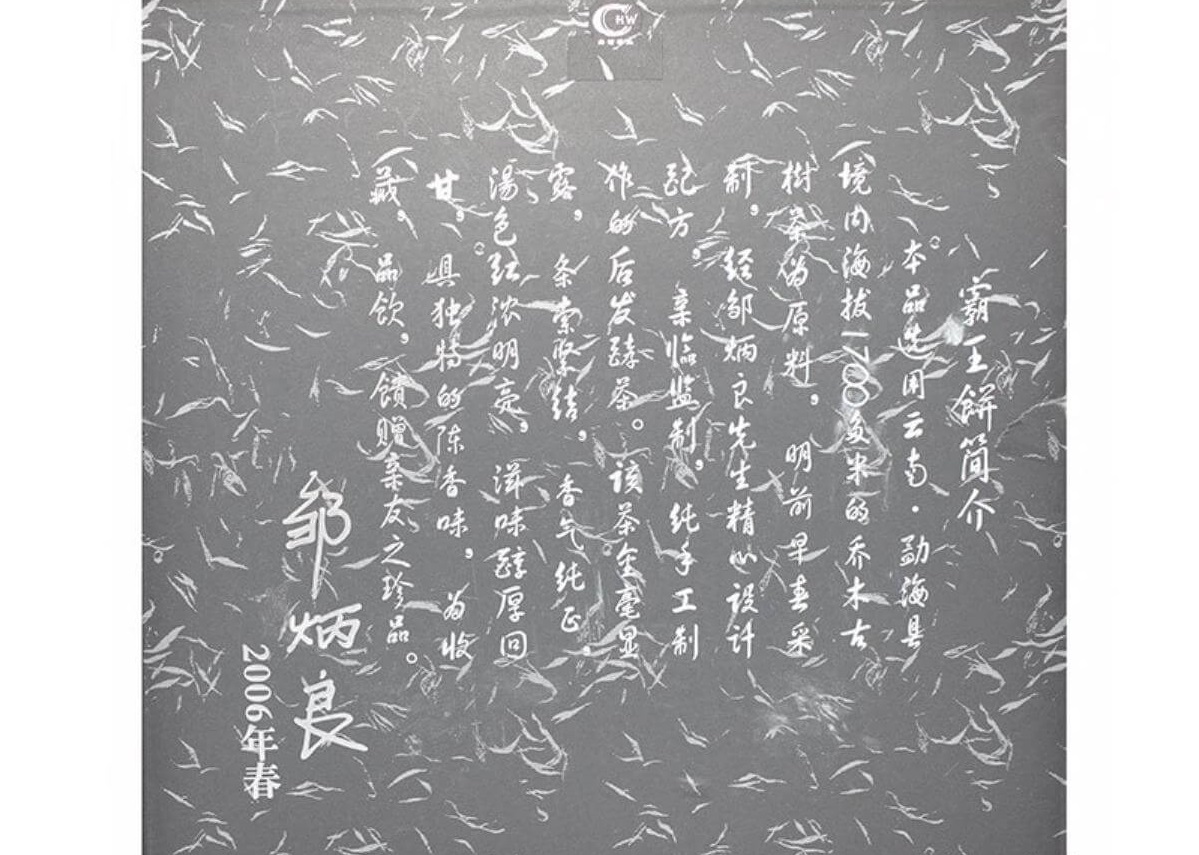 霸王餅简介
本品选用云南·勐海县
境内海拔1700多米的乔木古
樹茶为原料，明前早春采
制，经邹炳良先生精心设计
配方，亲临监制，纯手工制
作的后发酵茶。该茶金毫显
露，条索紧结，香气纯正，
湯色红浓明亮，滋味醇厚回
甘，具独特的陈香味，为收
藏，品饮，馈赠亲友之珍品。
邹炳良
2006年春
HW